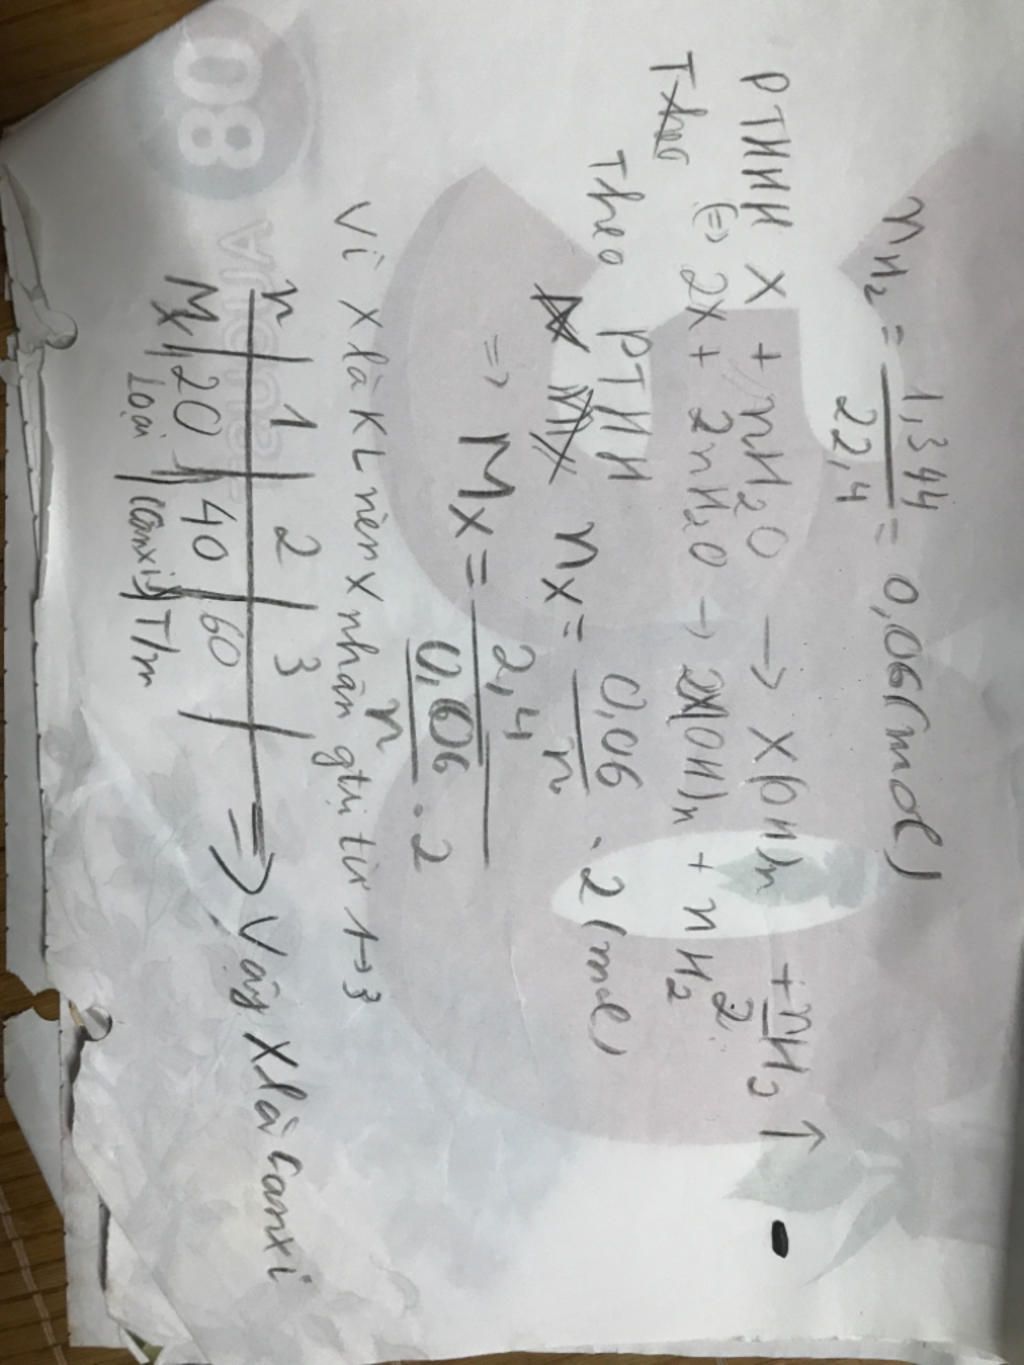 nH₂ = 1,344/22,4 = 0,06(mol)
PTHH X + nH₂O → X(OH)n + n/2 H₂ ↑
(=) 2X + 2nH₂O → 2X(OH)n + nH₂
Theo PTHH nX = 0,06/n . 2 (mol)
=> MX = 2,4 / (0,06/n . 2)
Vì X là KL nên X nhận gtrị từ 1→3
n | 1 | 2 | 3
MX | 20 | 40 | 60
Loại | (canxi) T/m
=> Vậy X là canxi
80